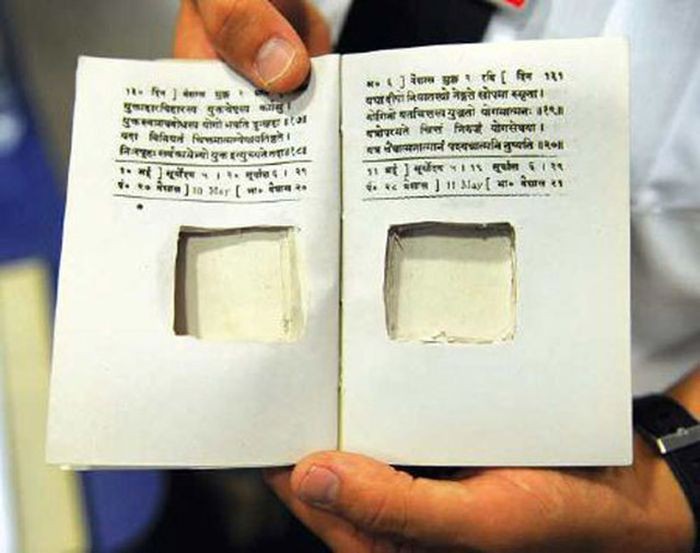 १३० दिन ] वैशाख शुक्ल १
युक्ताहारविहारस्य युक्तचेष्टस्य कर्मसु ।
युक्तस्वप्नावबोधस्य योगो भवति दुःखहा ॥१७॥
यदा विनियतं चित्तमात्मन्येवावतिष्ठते ।
निःस्पृहः सर्वकामेभ्यो युक्त इत्युच्यते तदा ॥१८॥
१० मई ] सूर्योदय ५ । सूर्यास्त ६ ।
पं० वैशाख ] 10 May [ भा० वैशाख २०
अ० ६ ] वैशाख शुक्ल २ रवि [ दिन १३१
यथा दीपो निवातस्थो नेङ्गते सोपमा स्मृता ।
योगिनो यतचित्तस्य युञ्जतो योगमात्मनः ॥१९॥
यत्रोपरमते चित्तं निरुद्धं योगसेवया ।
यत्र चैवात्मनात्मानं पश्यन्नात्मनि तुष्यति ॥२०॥
११ मई ] सूर्योदय ५ । १९ सूर्यास्त ६ ।
पं० २८ वैशाख ] 11 May [ भा० वैशाख २१